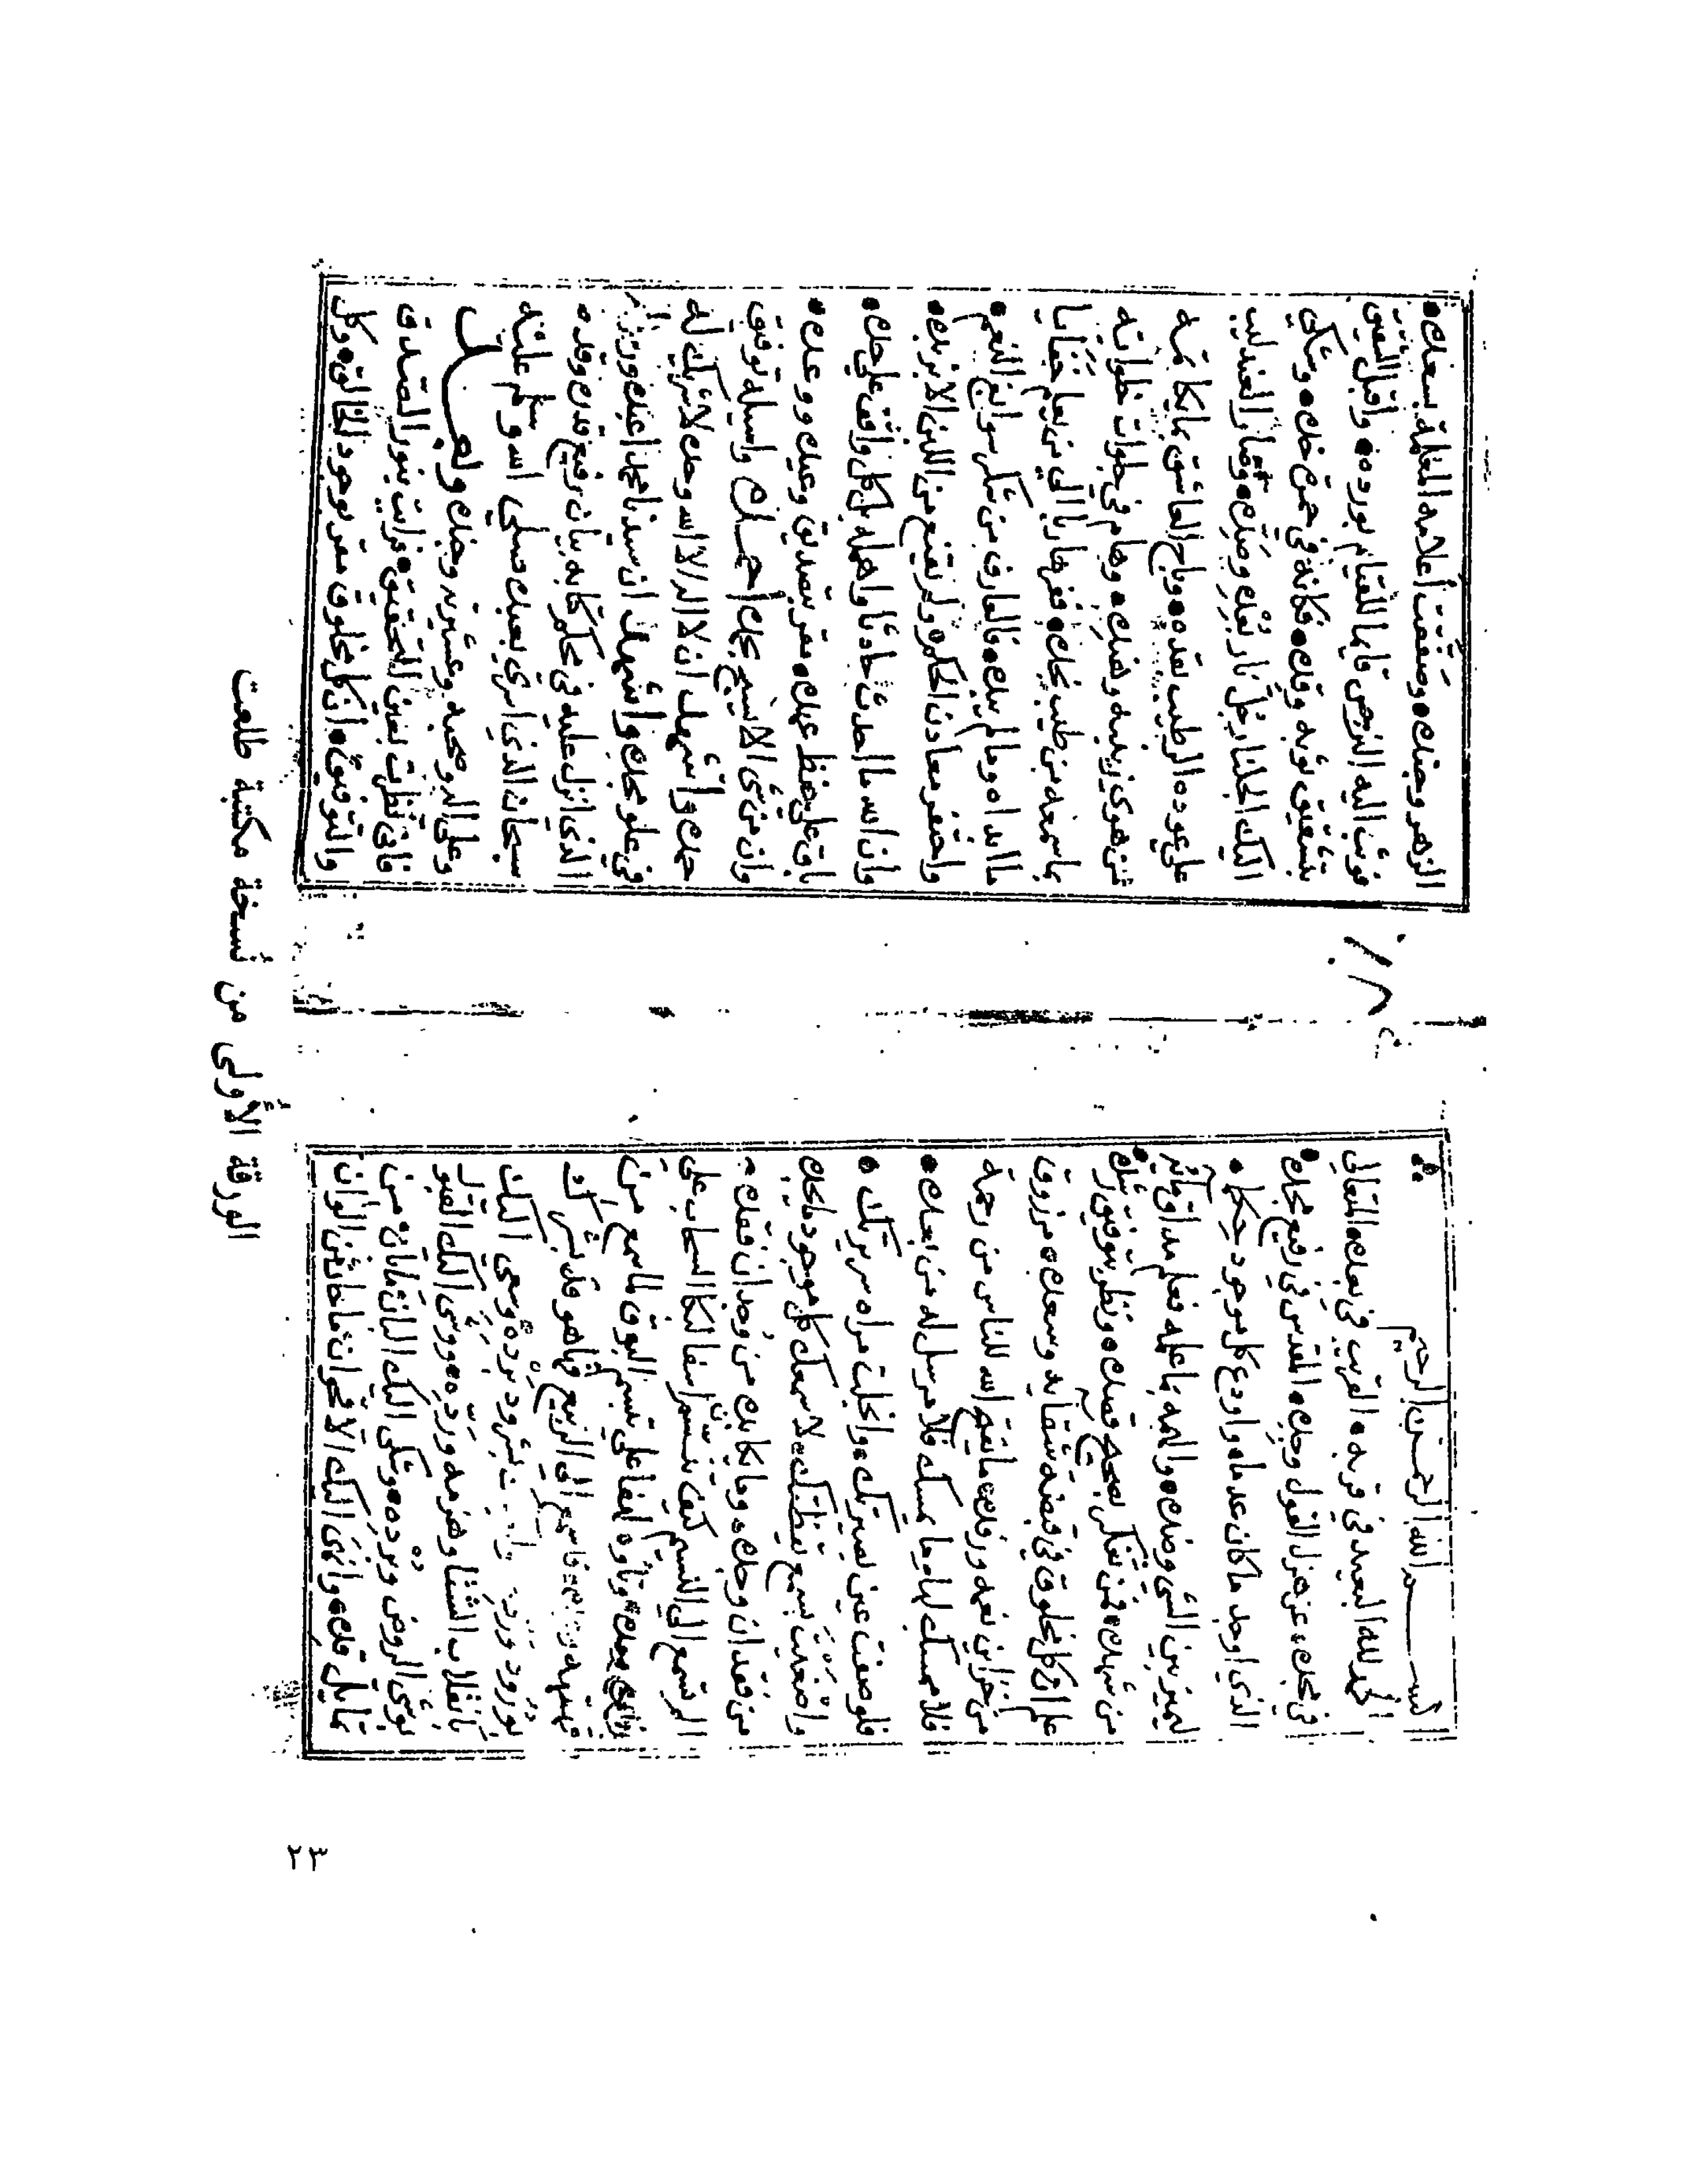 بسم الله الرحمن الرحيم
الحمد لله البعيد في قربه القريب في بعده المتعالي
في مجده عن هزل القول وجده المقدس في رفيع مجده
الذي اوجد ما كان عدما واودع كل موجود حكما
ليميز بين الشي وضده والهمه ما علمه فعلم مذاق
من شهده فمن تفكر بصحيح قصده ونظر بتوفيق رشده
علم ان كل مخلوق في قبضة شقايه وسعده مرزوق
من خزاين نعمه ورفده ما يفتح الله للناس من رحمة
فلا ممسك لها وما يمسك فلا مرسل له من بعده
فلو صفت عين بصيرتك وانجلت مراة سريرتك
واصغيت بسمع يقظتك لاسمعك كل موجود ما
من فقدان وجده وما يكابده من وجدان فقده
الم تسمع الى النسيم كيف اسفا لبكا السحاب على
تاوه لهفا على تبسم البروق
الى الربيع فما هو قد بشرك
بورود ورده وسعى اليك
بانقلاب الشتا وهزمه وبرده ووشى اليك
بوشي الروض وبرده وشكى اليك البان ما بان من
تمايل قده وانهى اليك الاقحوان ما الوان
الزهر وجنده وصففت أعلامه المعلمة بسعده
فوثب اليه النرجس قايما للقيام بورده واقبل الشقيق
بتشقيق ثوبه وقده فكانه في حمرة خده وشكى
اليك الجلنار جل نار بعده وصده وصار العندليب
على عوده الرطيب بعقده وباح العاشق بما يكاتمه
من هوى زينبه وهنده وهام في خلوات خلواته
بما سمعه من طيب نجده ففرها ربا الى من يعلم خفايا
ما ابداه وما لم يبده فالعارف من شكر سوابغ النعم
واحتفر معادن الحكم ولم يقنع من اللبن الا بزبده
وان الله ما احدث حادثا واهمله بل كل واقف على حده
باق على حفظ عهده مقر بتصديق وعيده ووعده
وان من شي الا يسبح بحمده احمده واسيله توفيق
حمده واشهد ان لا اله الا الله وحده لا شريك له
في علو مجده واشهد ان سيدنا محمدا عبده ورسوله
الذي انزل عليه في محكم كتابه بيان رفيع قدره وقده
سبحان الذي اسرى بعبده صلى الله وسلم عليه
وعلى اله وصحبه وعشيرته وجنده وبعد
فاني نظرت بعين التحقيق فرايت بنور التصديق
والتوفيق ان كل مخلوق مقر بوجود الخالق وكل
الورقة الأولى من نسخة مكتبة طلعت
٢٣